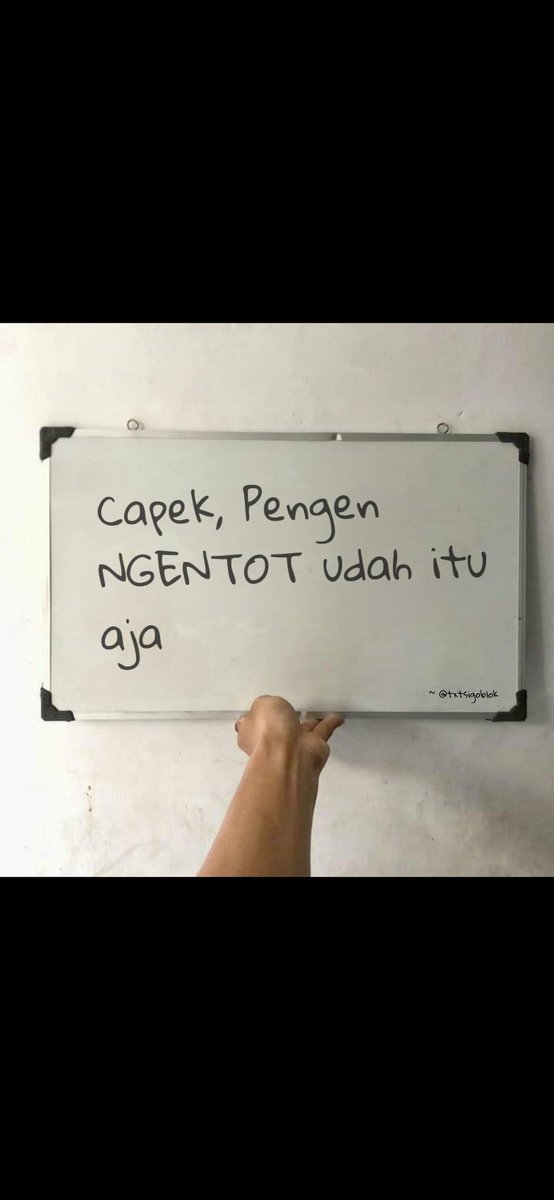 Capek, Pengen
NGENTOT udah itu
aja
~ @txtsigoblok